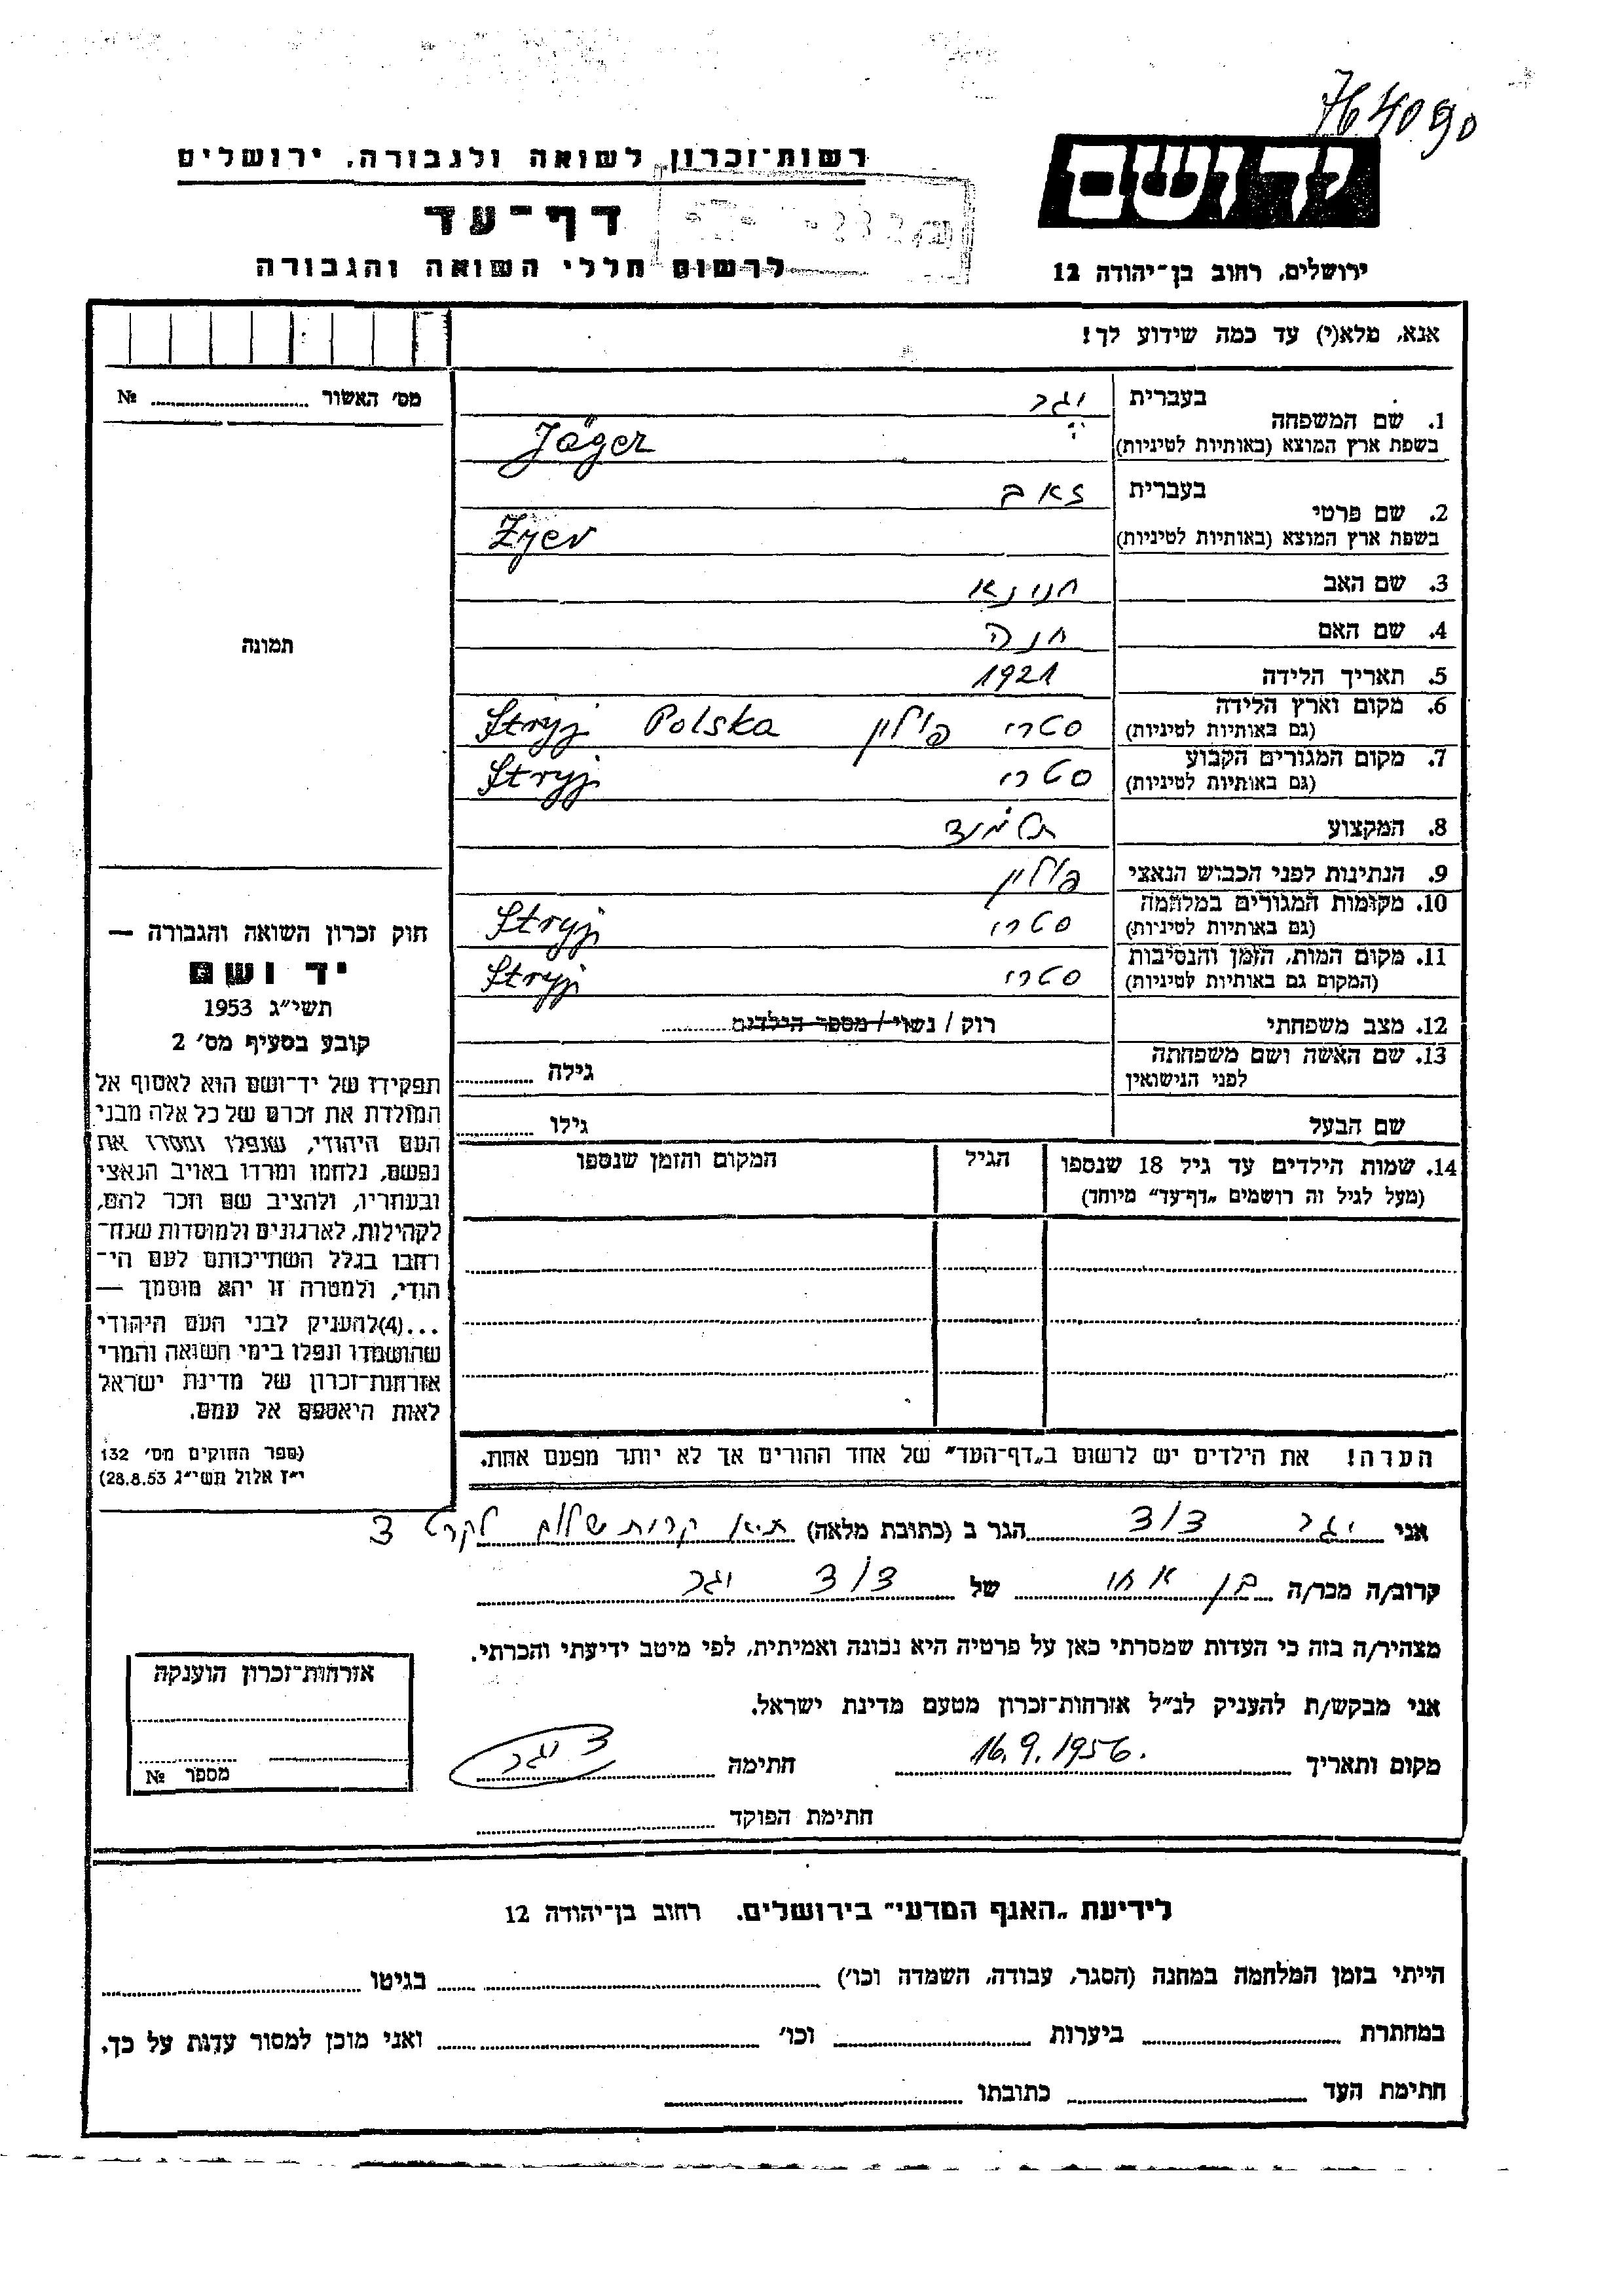 764090
רשות־זכרון לשואה ולגבורה, ירושלים
יד ושם
דף־עד
לרשום חללי השואה והגבורה
ירושלים, רחוב בן־יהודה 12
אנא, מלא(י) עד כמה שידוע לך!
מס׳ האשור № 
1. שם המשפחה
בעברית יגר
בשפת ארץ המוצא (באותיות לטיניות) Jäger
2. שם פרטי
בעברית זאב
בשפת ארץ המוצא (באותיות לטיניות)
3. שם האב חנינא
4. שם האם חנה
5. תאריך הלידה 1921
6. מקום וארץ הלידה סטרי פולין Stryj Polska
(גם באותיות לטיניות)
7. מקום המגורים הקבוע סטרי Stryj
(גם באותיות לטיניות)
8. המקצוע תלמיד
9. הנתינות לפני הכבוש הנאצי פולין
10. מקומות המגורים במלחמה סטרי Stryj
(גם באותיות לטיניות)
11. מקום המות, הזמן והנסיבות סטרי Stryj
(המקום גם באותיות לטיניות)
12. מצב משפחתי רוק / נשוי / מספר הילדים
13. שם האשה ושם משפחתה לפני הנישואין גילה
שם הבעל גילו
14. שמות הילדים עד גיל 18 שנספו הגיל המקום והזמן שנספו
(מעל לגיל זה רושמים „דף־עד״ מיוחד)
הערה! את הילדים יש לרשום ב„דף־העד״ של אחד ההורים אך לא יותר מפעם אחת.
תמונה
חוק זכרון השואה והגבורה —
יד ושם
תשי״ג 1953
קובע בסעיף מס׳ 2
תפקידו של יד־ושם הוא לאסוף אל
המולדת את זכרם של כל אלה מבני
העם היהודי, שנפלו ומסרו את
נפשם, נלחמו ומרדו באויב הנאצי
ובעוזריו, ולהציב שם וזכר להם,
לקהילות, לארגונים ולמוסדות שנח־
רבו בגלל השתייכותם לעם הי־
הודי, ולמטרה זו יהא מוסמך —
...(4)להעניק לבני העם היהודי
שהושמדו ונפלו בימי השואה והמרי
אזרחות־זכרון של מדינת ישראל
לאות היאספם אל עמם.
(ספר החוקים מס׳ 132
י״ז אלול תשי״ג 28.8.53)
אני יגר הגר ב (כתובת מלאה) ת״א קרית שלום
קרוב/ה מכר/ה בן אחו של יגר
מצהיר/ה בזה כי העדות שמסרתי כאן על פרטיה היא נכונה ואמיתית, לפי מיטב ידיעתי והכרתי.
אני מבקש/ת להעניק לנ״ל אזרחות־זכרון מטעם מדינת ישראל.
מקום ותאריך 16.9.1956. חתימה יגר
חתימת הפוקד
אזרחות־זכרון הוענקה
מספר №
לידיעת „האגף המדעי״ בירושלים. רחוב בן־יהודה 12
הייתי בזמן המלחמה במחנה (הסגר, עבודה, השמדה וכו׳) בגיטו
במחתרת ביערות וכו׳ ואני מוכן למסור עדות על כך.
חתימת העד כתובתו